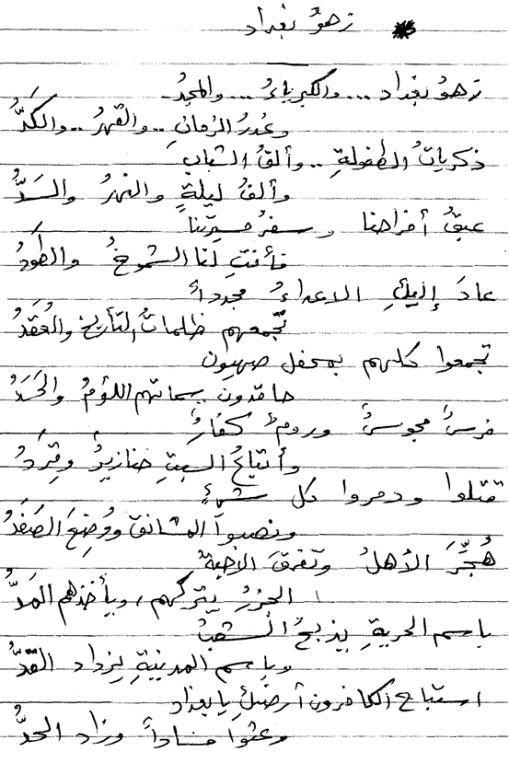 زهوُ بغداد
زهوُ بغداد ... والكبرياءُ ... والمجدُ
وغدرُ الزمانِ .. والقهرُ .. والكَدُّ
ذكرياتُ الطفولةِ .. وألقُ الشباب
وألفُ ليلةٍ والنهرُ والسَدُّ
عبقُ أفراحنا وسفرُ مسيرتنا
فأنتِ لنا الشموخُ والطَودُ
عادَ إليكِ الاعداءُ مجدداً
تجمعهم ظلماتُ التأريخِ والعُقَدُ
تجمعوا كلهم بمحفل صهيون
حاقدون سماتهم اللؤمُ والحَسَدُ
فرسٌ مجوسٌ ورومٌ كفارٌ
وأتباعُ السبتِ خنازيرٌ وقِرَدُ
قتلوا ودمروا كل شيءٍ
ونصبوا المشانقَ ووُضِعَ الصَفَدُ
هُجِّرَ الأهلُ وتفرقَ الأحبةُ
الجزرُ يتركهم، ويأخذهم المَدُّ
باسم الحريةِ يذبحُ الشعبُ
وباسم المدنيةِ يزداد القَدُّ
استباح الكافرون أرضكِ يا بغداد
وعثوا فساداً وزاد الحدُّ